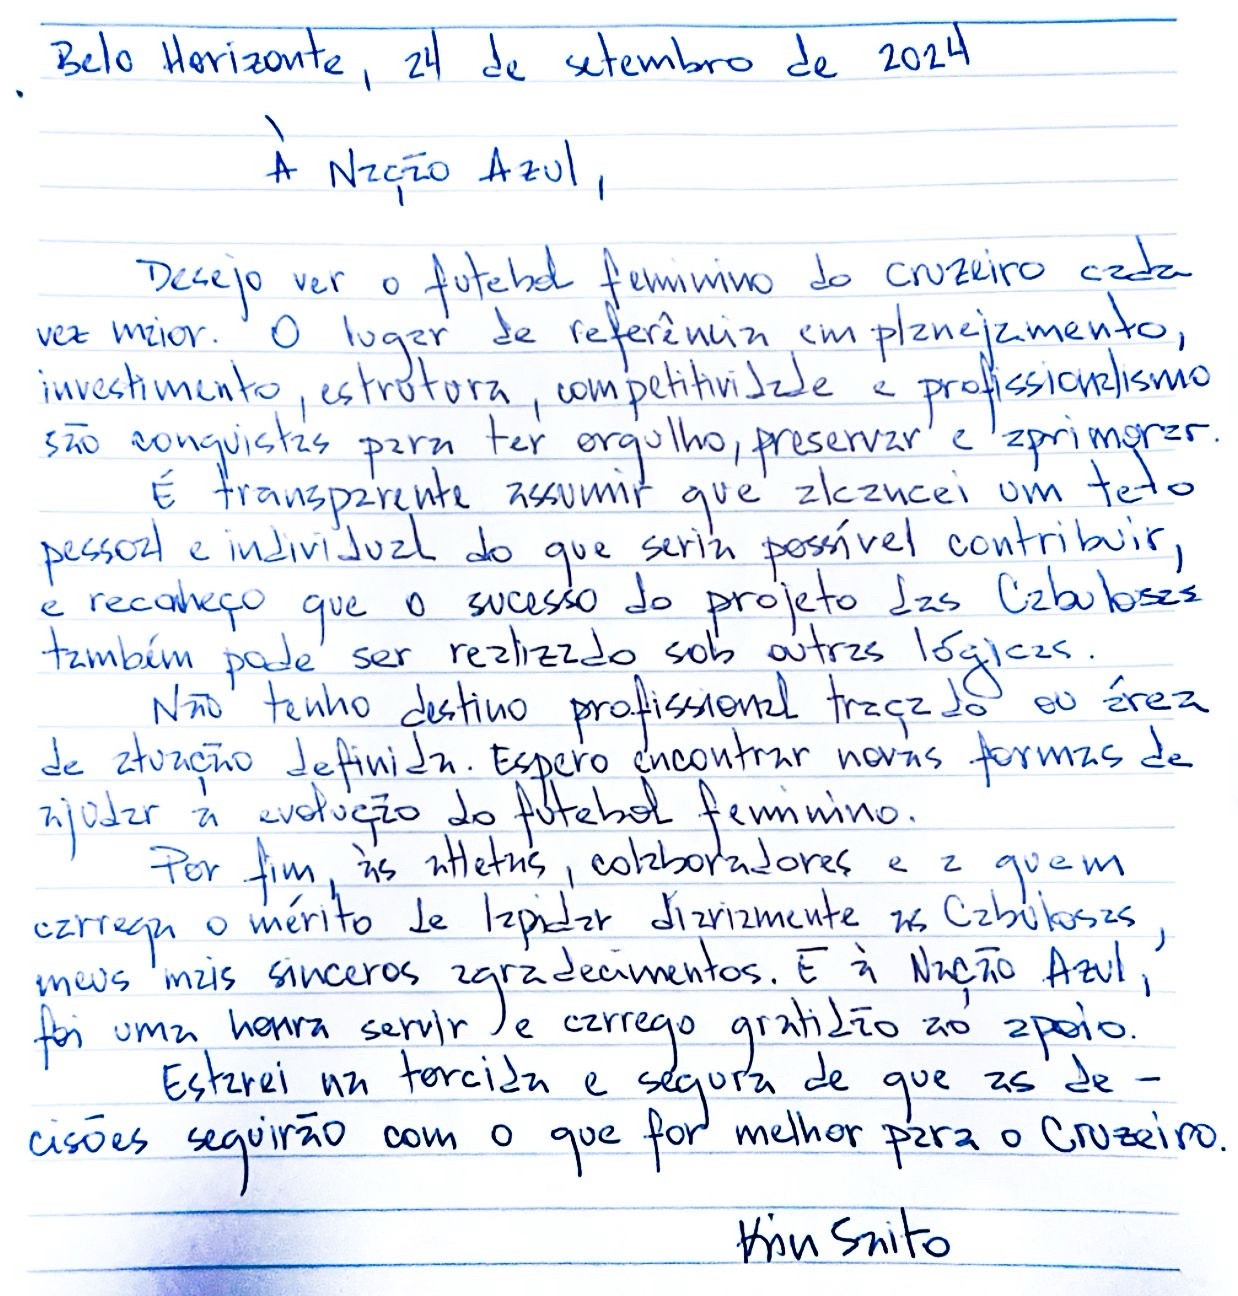 Belo Horizonte, 24 de setembro de 2024
À Nação Azul,
Desejo ver o futebol feminino do Cruzeiro cada
vez maior. O lugar de referência em planejamento,
investimento, estrutura, competitividade e profissionalismo
são conquistas para ter orgulho, preservar e aprimorar.
É transparente assumir que alcancei um teto
pessoal e individual do que seria possível contribuir,
e reconheço que o sucesso do projeto das Cabulosas
também pode ser realizado sob outras lógicas.
Não tenho destino profissional traçado ou área
de atuação definida. Espero encontrar novas formas de
ajudar a evolução do futebol feminino.
Por fim, às atletas, colaboradores e a quem
carrega o mérito de lapidar diariamente as Cabulosas,
meus mais sinceros agradecimentos. E à Nação Azul,
foi uma honra servir e carrego gratidão ao apoio.
Estarei na torcida e segura de que as de-
cisões seguirão com o que for melhor para o Cruzeiro.
Kin Saito